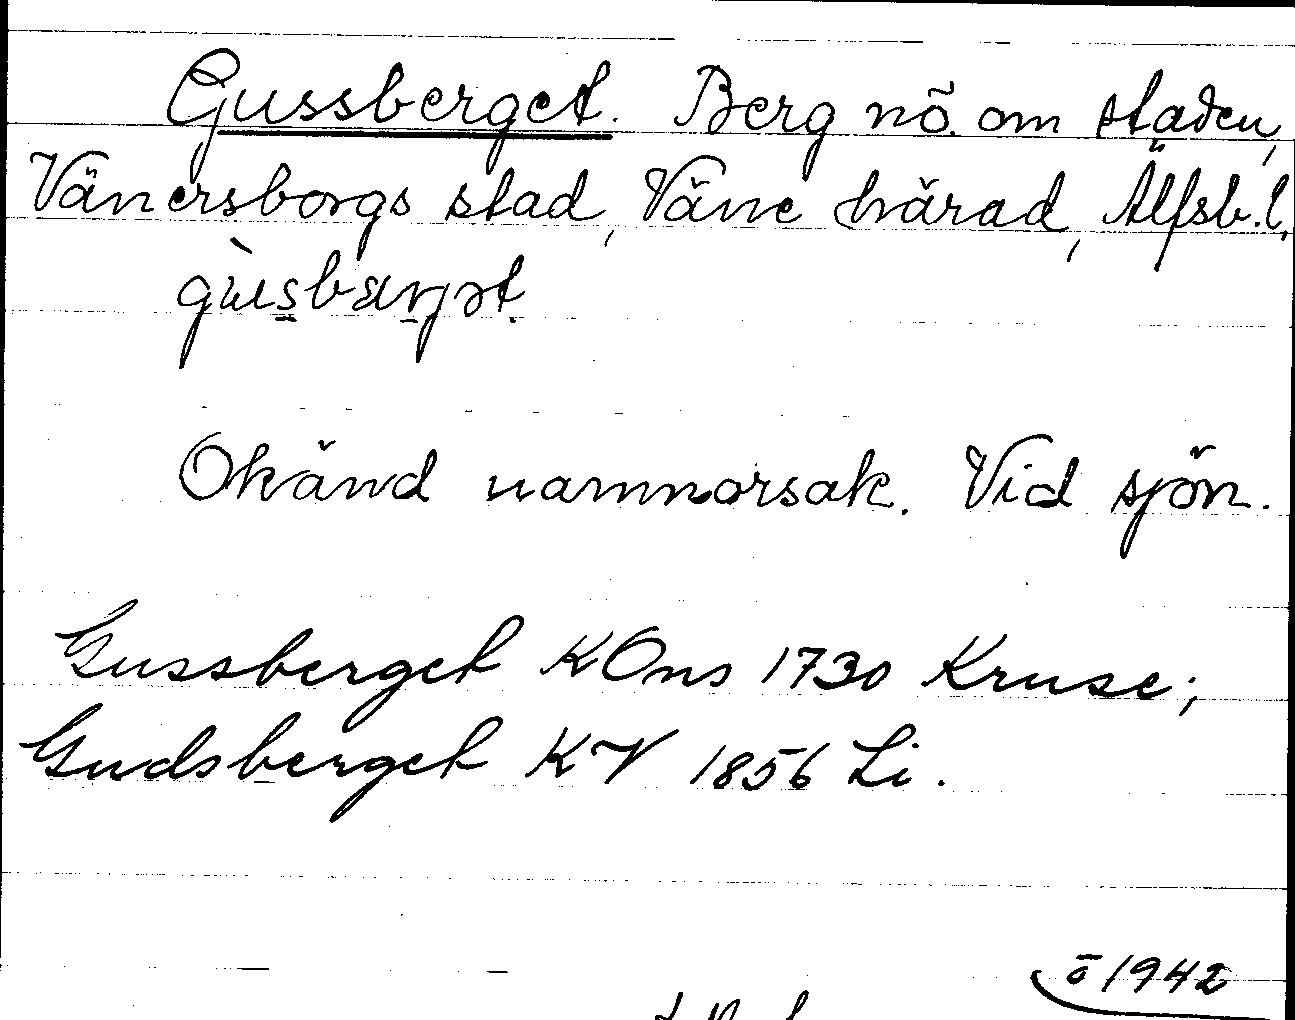 Gussberget. Berg nö. om staden,
Vänersborgs stad, Väne härad, Älfsb. l.
gùsbærjət.
Okänd namnorsak. Vid sjön.
Gussberget KOns 1730 Kruse;
Gudsberget KV 1856 Li.
ö 1942